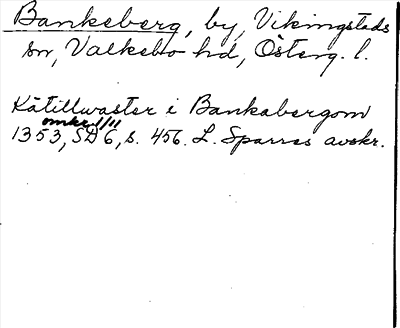 Bankeberg, by, Vikingstads
sn, Valkebo hd, Österg. l.
Kätillwaster i Bankabergom
omkr. 1/11
1353, SD 6, s. 456. L. Sparres avskr.